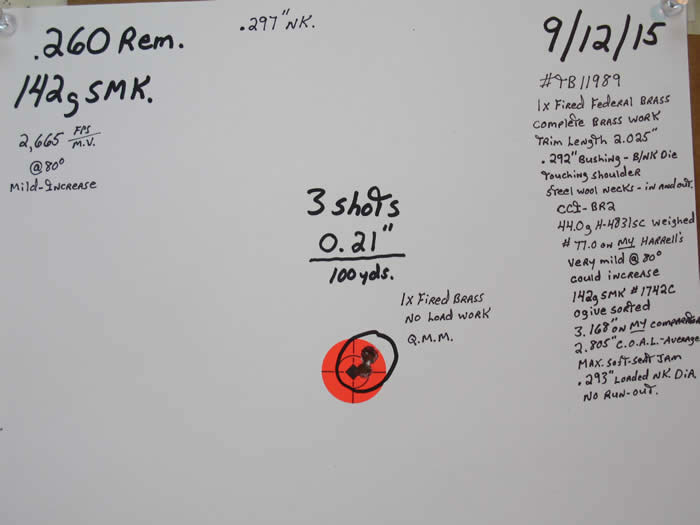 .260 Rem.
142g SMK.
2,665 FPS/M.V.
@80°
Mild-Increase
.297" NK.
3 shots
0.21"
100 yds.
1x Fired Brass
No Load Work
Q.M.M.
9/12/15
#TB11989
1x Fired Federal Brass
Complete Brass Work
Trim Length 2.025"
.292" Bushing - B/NK Die
Touching shoulder
Steel wool Necks - in and out.
CCI-BR2
44.0g H-4831SC weighed
# 77.0 on My Harrell's
very mild @ 80°
could increase
142g SMK #1742C
ogive sorted
3.168" on My comparator
2.805" C.O.A.L.-Average
Max. Soft-Seat Jam
.293" Loaded NK. Dia.
No Run-out.